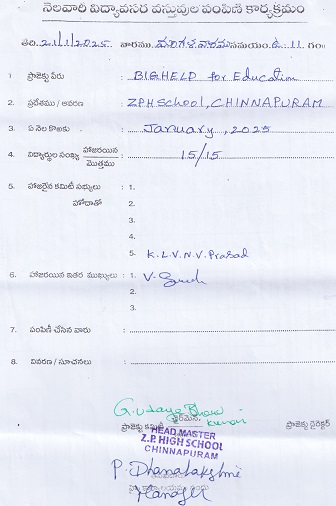 నెలవారి విద్యావసర వస్తువుల పంపిణి కార్యక్రమం
తేది. 21/1/2025 వారము. మంగళవారము సమయం. ఉ. 11. గం॥
1 ప్రాజెక్టు పేరు : BIGHELP for Education
2. ప్రదేశము / ఆవరణ : ZPHSchool, CHINNAPURAM
3. ఏ నెల కొఱకు : January, 2025
4. విద్యార్థుల సంఖ్య హాజరయిన/మొత్తము : 15/15
5. హాజరైన కమిటీ సభ్యులు : 1.
హోదాతో 2.
3.
4.
5. K.L.V.N.V. Prasad
6. హాజరయిన ఇతర ముఖ్యులు : 1. V.
2.
3.
7. పంపిణీ చేసిన వారు :
8. వివరణ / సూచనలు :
G. Udaya Bhaskar
ప్రాజెక్టు కమిటీ ఛైర్మెన్ ప్రాజెక్టు డైరెక్టర్
HEAD MASTER
Z.P. HIGH SCHOOL
CHINNAPURAM
P. Dhanalakshmi
Manager